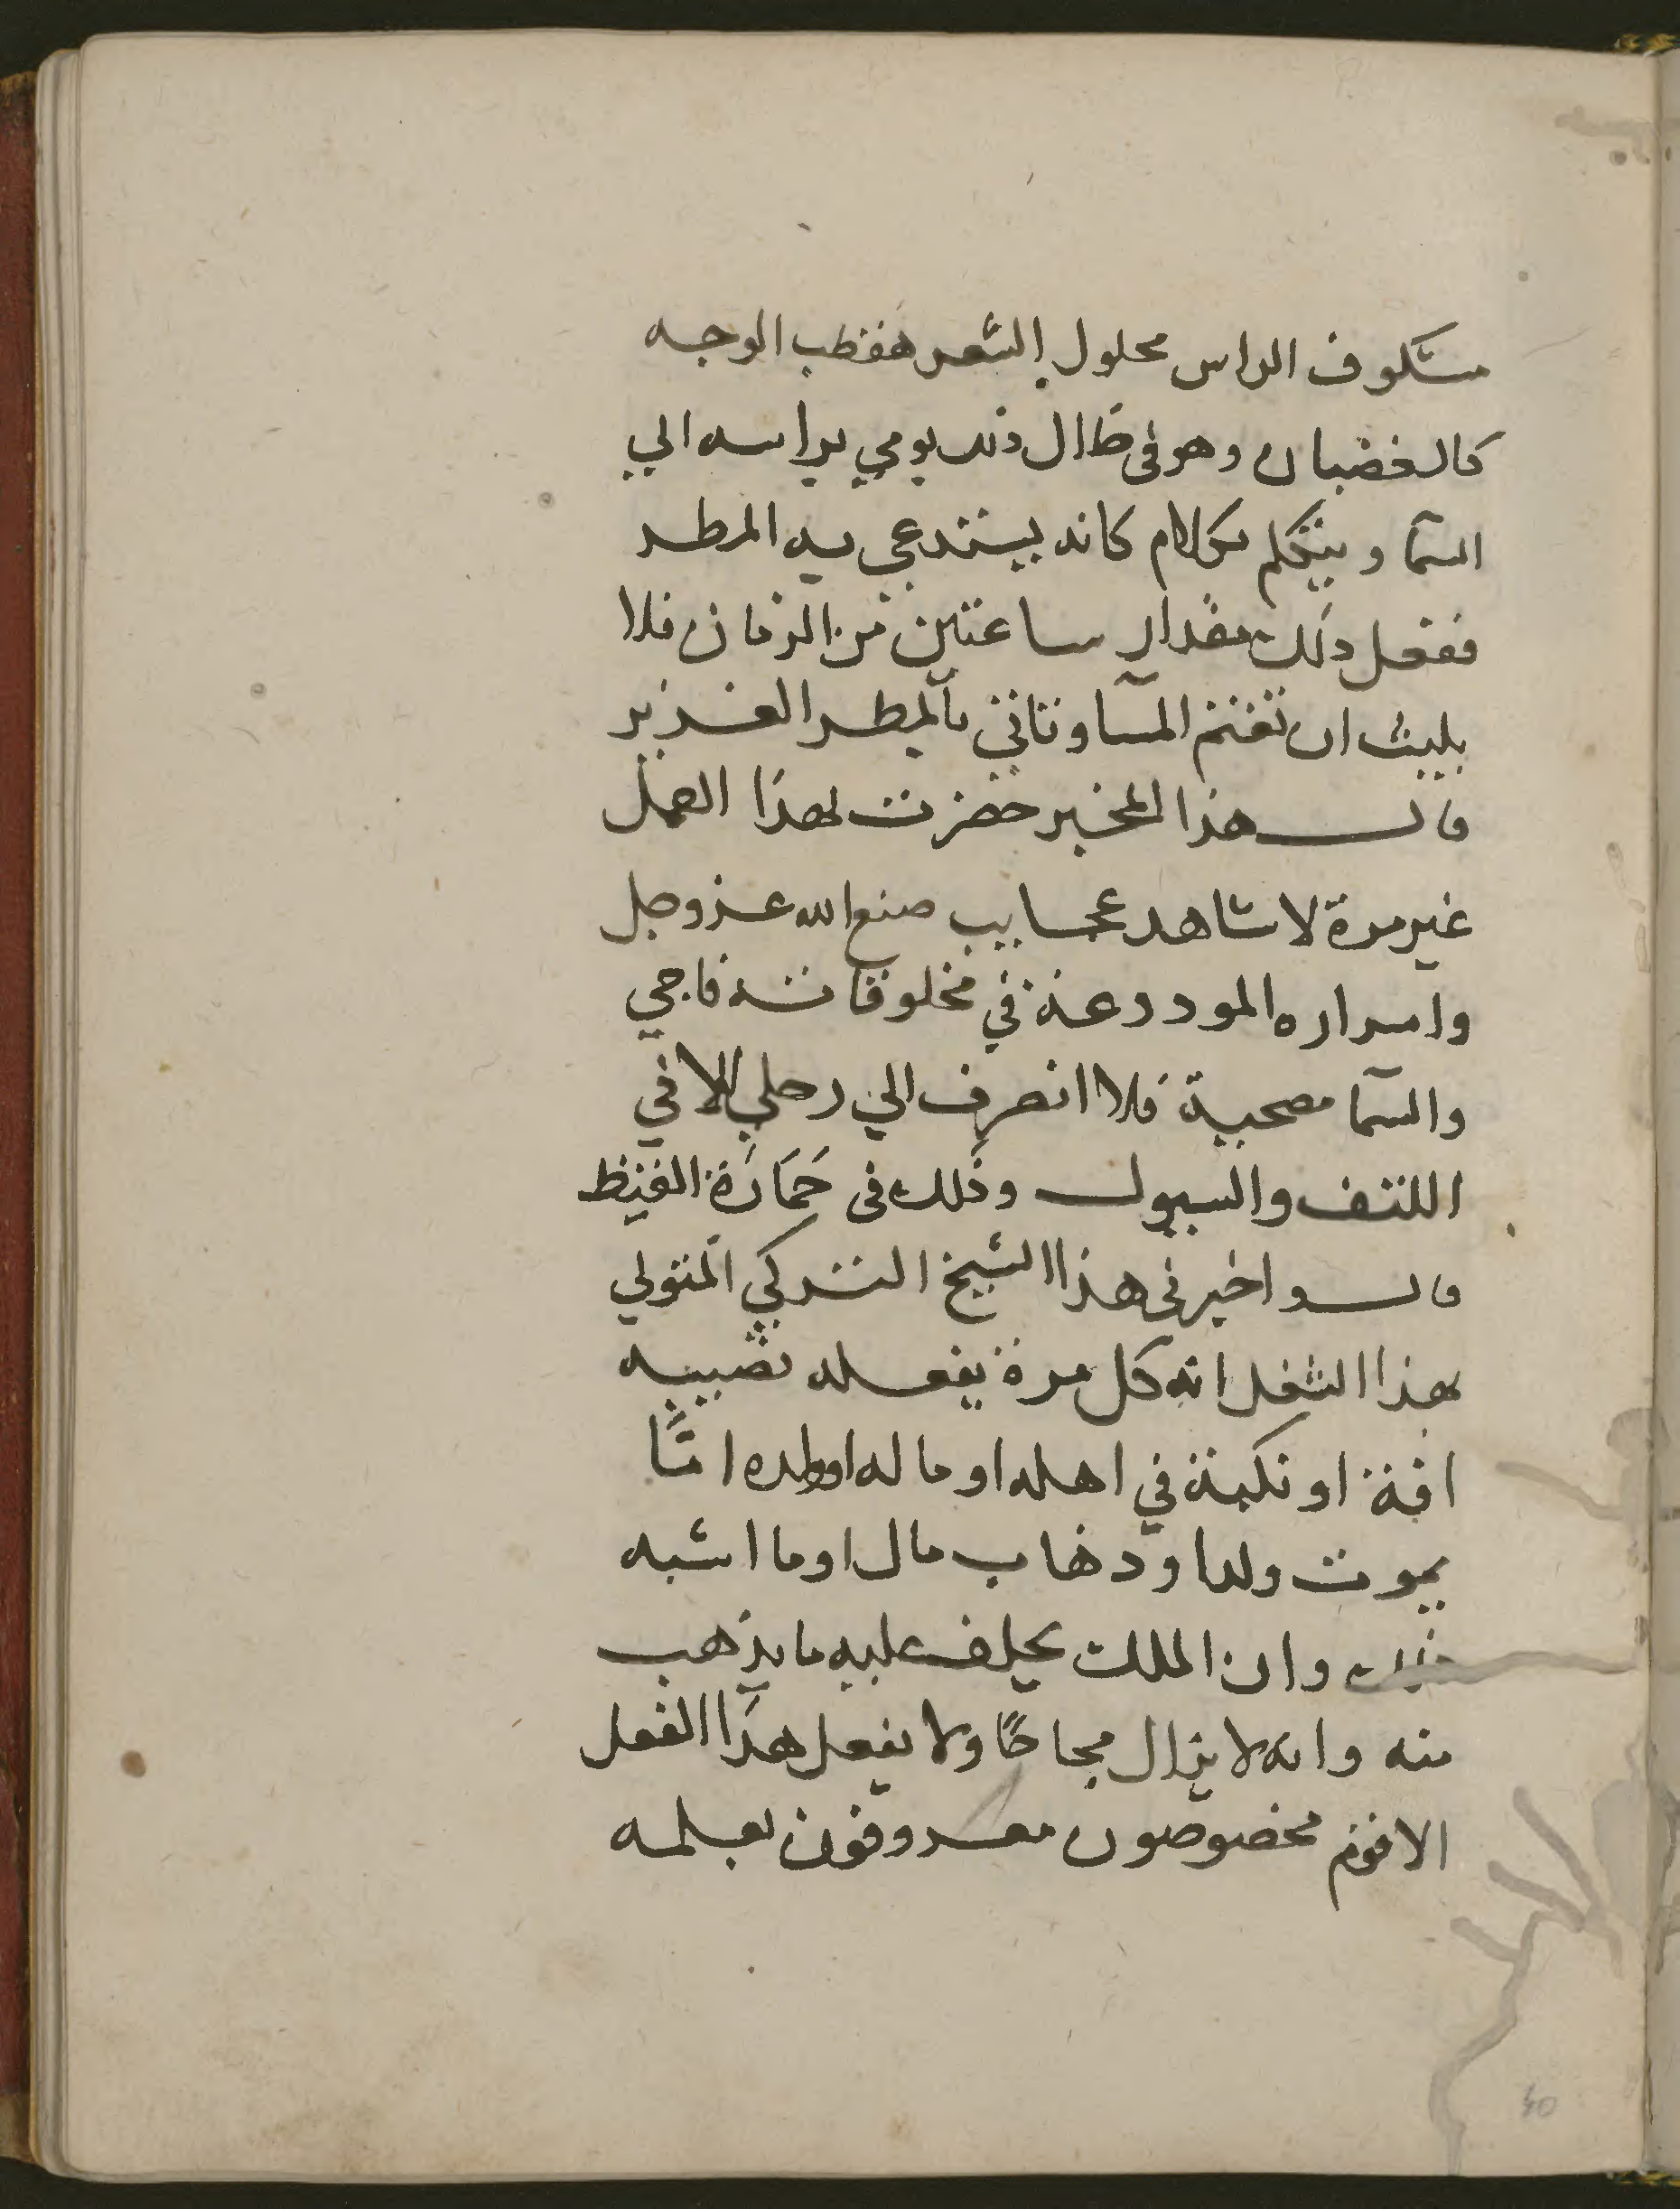 مشكوف الراس محلول الشعر مقطب الوجه
كالغضبان وهو فى ظال ذلك يومي براسه الي
السمآ ويتكلم بكلام كانه يستدعي به المطر
ففعل دلك مقدار ساعتين من الزمان فلا
يلبث ان تغتم السمآ وتاتي بآلمطر الغزير
قال هذا المخبر حضرت لهذا العمل
غير مرة لاشاهد عجايب صنع الله عز وجل
واسراره الموددعة في مخلوقاته فاجي
والسمآ مصحية فلا انصرف الي رحلي الا في
اللثف والسيول وذلك فى حَمَارَة القيظ
قال واخبرنى هذا الشيخ التركي المتولي
هذا الشغل انه كل مرة يفعله تصيبه
افة او نكبة في اهله او ماله او ولده امَّا
بموت ولد او دهاب مال او ما اشبه
ذلك وان الملك يخلف عليه ما يذهب
منه وانه لا يزال مجاحًا ولا يفعل هذا الفعل
الا قوم مخصوصون معروفون بعلمه
40